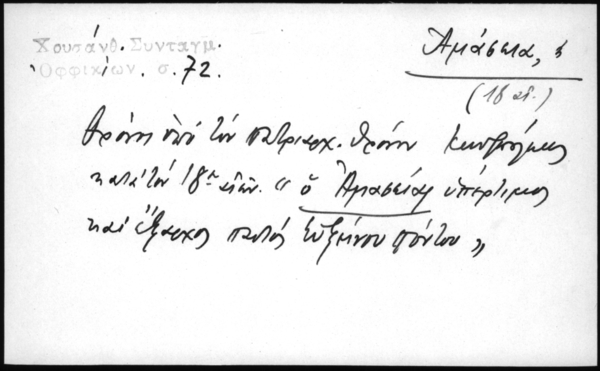 Χρυσάνθ. Συνταγμ.
Ὀφφικίων. σ. 72.
Ἀμάσεια, ἡ
(18 αἰ.)
θρόνος ὑπὸ τὸν πατριαρχ. θρόνον Κων/πόλεως
κατὰ τὸν 18ον αἰῶν. "ὁ Ἀμασείας ὑπέρτιμος
καὶ ἔξαρχος παντὸς Εὐξείνου Πόντου"